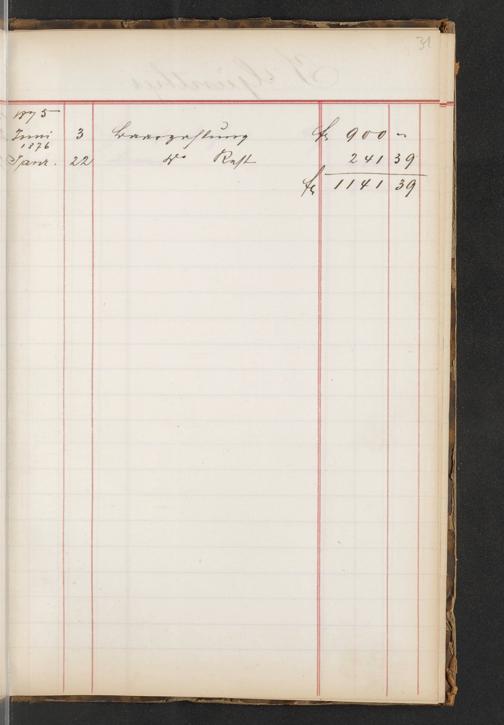 31
1875
Juni 3 Baarzahlung fr 900 –
1876
Janr. 22 do Rest 241 39
fr 1141 39